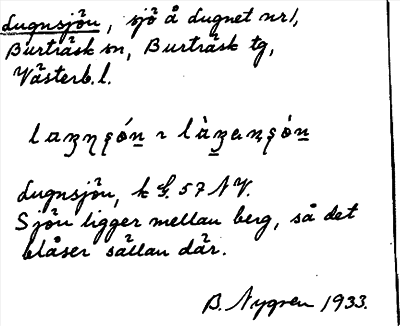 Lugnsjön, sjö å Lugnet nr 1,
Burträsk sn, Burträsk tg,
Västerb. l.
Lugnsjön, k 57 NV.
Sjön ligger mellan berg, så det
blåser sällan där.
B. Nygren 1933.